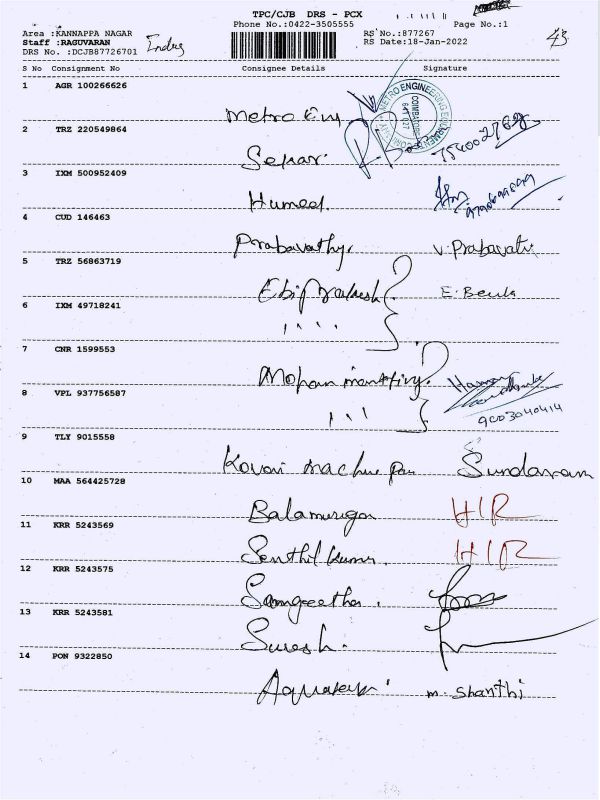 TPC/CJB DRS - PCX
Phone No.:0422-3505555 Page No.:1
Area :KANNAPPA NAGAR RS No.:877267
Staff :RAGUVARAN RS Date:18-Jan-2022
DRS No. :DCJB87726701
S No Consignment No Consignee Details Signature
1 AGR 100266626
Metro Eng
2 TRZ 220549864
Sekar
3 IXM 500952409
Humeed
4 CUD 146463
Prabavathy V. Prabavathi
5 TRZ 56863719
Ebi Prakash E. Beula
6 IXM 49718241
7 CNR 1599553
Mohan
8 VPL 937756587
9003040414
9 TLY 9015558
Kovai Sundaram
10 MAA 564425728
Balamurugan H/R
11 KRR 5243569
Senthil Kumar. H/R
12 KRR 5243575
Sangeetha.
13 KRR 5243581
Suresh.
14 PON 9322850
m. Shanthi